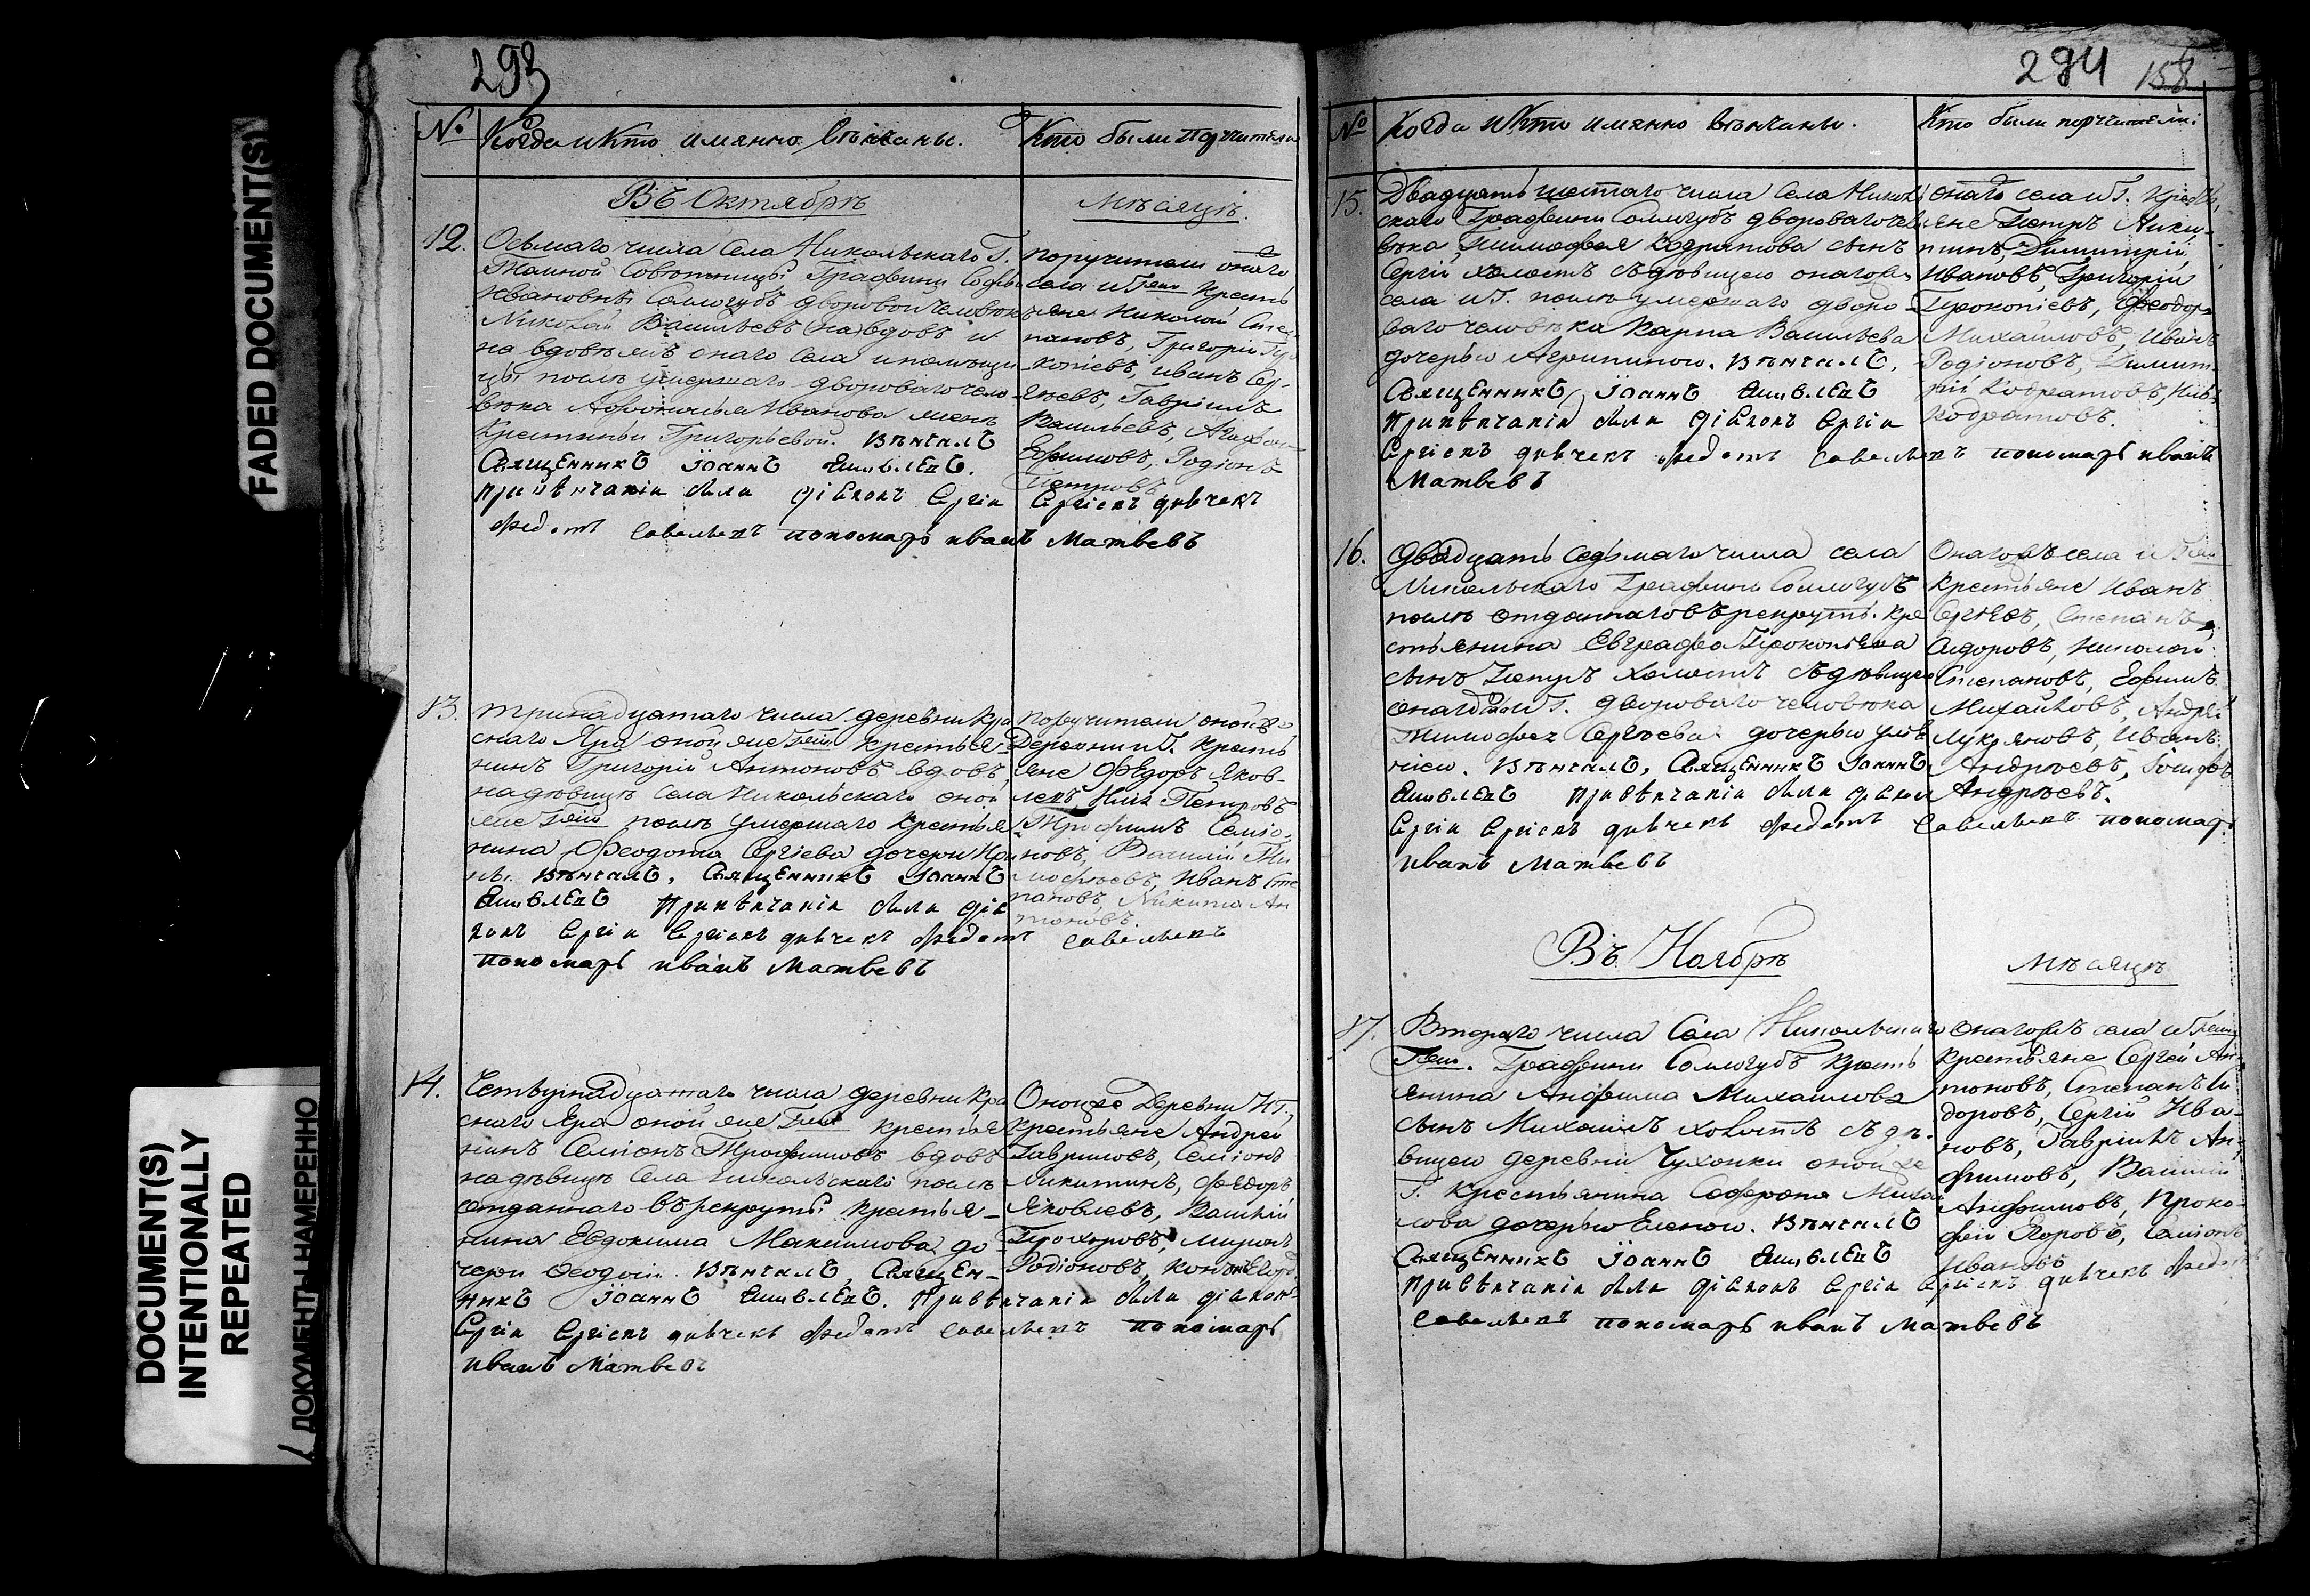 293
№ Когда и Кто имянно венчаны. Кто были поручители
Въ Октябрѣ Мѣсяцѣ.
12. Осьмаго числа Села Никольскаго Г.
Тайной Совѣтницы Графини Софьи
Ивановны Соллогубъ дворовой человѣкъ
Николай Васильевъ (на) вдовъ и
на вдовѣ онаго Села и помѣщи
цы послѣ умершаго двороваго чело
вѣка Иванова женѣ
Григорьевой. Вѣнчалъ
Священникъ Іоаннъ
При вѣнчаніи были діаконъ Сергіи
Федотъ Савельевъ пономарь иванъ Матвевъ
поручители онаго
села и Г-жи кресть
яне Николай Сте
пановъ, Григорій Про
копіевъ, Иванъ Сер-
гѣевъ, Гавріилъ
Васильевъ,
Ефимовъ, Родіонъ
Петровъ
Сергіевъ дьячекъ
13. тринадцатаго числа деревни Кра
снаго Яра оной же Г-жи крестья
нинъ Григорій Антоновъ вдовъ,
на дѣвицѣ Села Никольскаго оной
же Г-жи послѣ умершаго крестья
нина Феодота Сергіева дочери Ири
нѣ. Вѣнчалъ, Священникъ Іоаннъ
При вѣнчаніи были діа
конъ Сергіи Сергіевъ дьячекъ Федотъ Савельевъ
пономарь иванъ Матвевъ
поручители оной же
Деревни и Г. кресть
яне Федоръ Яков-
левъ, Илья Петровъ
Трофимъ Семіо-
новъ, Василій Ти
мофѣевъ, Иванъ Сте
пановъ, Никита Ан
тоновъ.
14. Четвернадцатаго числа деревни Кра
снаго Яра оной же Г-жи крестья
нинъ Семіонъ Трофимовъ вдовъ
на дѣвицѣ Села Никольскаго послѣ
отданнаго въ рекруты крестья-
нина Евдокима Максимова до
чери Ѳеодосіи. Вѣнчалъ, Священ-
никъ Іоаннъ При вѣнчаніи были діаконъ
Сергіи Сергіевъ дьячекъ Федотъ Савельевъ пономарь
иванъ Матвевъ
Оной же Деревни и Г.
крестьяне Андрей
Гавриловъ, Семіонъ
Никитинъ, Федоръ
Яковлевъ, Василій
Прохоровъ, Миронъ
Родіоновъ,
294 158
№ Когда и Кто имянно венчаны. Кто были поручители:
15. Двадцать шестаго числа Села Николь
скаго Графини Соллогубъ двороваго чело
вѣка Тимофея Кодратова сынъ
Сергій холостъ съ дѣвицею онагожъ
села и Г. послѣ умершаго дворо-
ваго человѣка Карпа Васильева
дочерью Агрипиною. Вѣнчалъ,
Священникъ, Іоаннъ
При вѣнчаніи были діаконъ Сергіи
Сергіевъ дьячекъ Федотъ Савельевъ пономарь иванъ
Матвевъ
онагожъ села и Г. кресть
яне Петръ Ники-
тинъ, Димитрій
Ивановъ, Григорій
Прокопіевъ, Феодоръ
Михайловъ, Иванъ
Родіоновъ, Димит-
рій Кодратовъ, Илья
Кодратовъ.
16. Двадцать Седьмаго числа села
Никольскаго Графини Соллогубъ
послѣ отданнаго въ рекруты кре
стьянина Евграфа Прокопьева
сынъ холостъ съ дѣвицею
онагожъ и Г. двороваго человѣка
Тимофея Сергѣева дочерью
Вѣнчалъ, Священникъ Іоаннъ
При вѣнчаніи были діаконъ
Сергіи Сергіевъ дьячекъ Федотъ Савельевъ пономарь
иванъ Матвевъ
Онагожъ села и Г-жи
крестьяне Иванъ
Сергѣевъ, Степанъ
Сидоровъ, Николай
Степановъ, Ефимъ
Михайловъ, Андрей
Лукьяновъ, Иванъ
Андрѣевъ, Іосифъ
Андрѣевъ.
Въ Ноябрѣ Мѣсяцѣ
17. Втораго числа Села Никольскаго
Г-жи. Графини Соллогубъ кресть
янина Анфима Михайлова
сынъ Михаилъ холостъ съ дѣ-
вицею деревни Чухонки оной же
Г. крестьянина Софрона Михай
лова дочерью Еленою. Вѣнчалъ
Священникъ Іоаннъ
При вѣнчаніи были діаконъ Сергіи Сергіевъ дьячекъ Федотъ
Савельевъ пономарь иванъ Матвевъ
онагожъ села и Г-жи
крестьяне Сергей Ан
тоновъ, Степанъ Си
доровъ, Сергій Ива-
новъ, Гавріилъ Ан-
фимовъ, Василій
Анфимовъ, Проко-
фій Егоровъ, Семіонъ
Ивановъ
FADED DOCUMENT(S)
DOCUMENT(S)
INTENTIONALLY
REPEATED
/ ДОКУМЕНТЫ НАМЕРЕННО